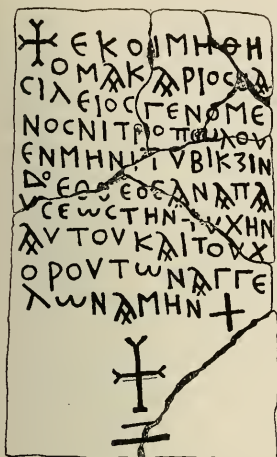 ☩ ΕΚΟΙΜΗΘΗ
ΟΜΑΚΑΡΙΟϹΒΑ
ϹΙΛΕΙΟϹΓΕΝΟΜΕ
ΝΟϹΝΙΤΡΟΠΩΛΟΥ
ΕΝΜΗΝΙΤΥΒΙΚΖΙΝ
ΔοΕΟΘΕΟϹΑΝΑΠΑ
ΥϹΕΩϹΤΗΝΨΥΧΗΝ
ΑΥΤΟΥΚΑΙΤΟΥΧ
ΟΡΟΥΤΩΝΑΓΓΕ
ΛΩΝΑΜΗΝ +